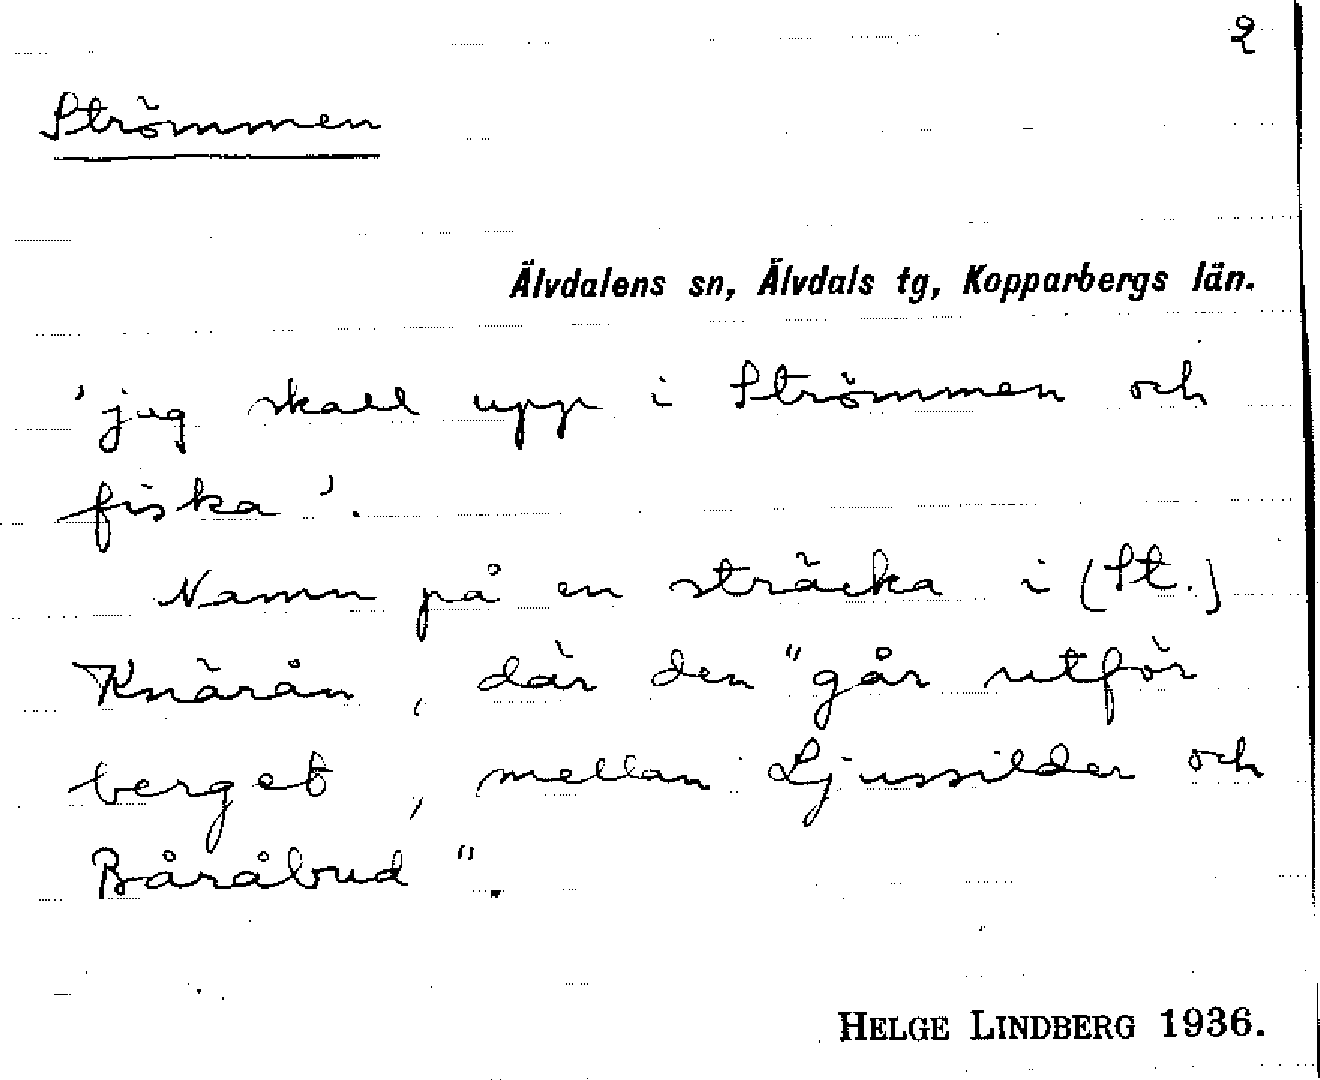 2
Strömmen
Älvdalens sn, Älvdals tg, Kopparbergs län.
'jag skall upp i Strömmen och
fiska'.
Namn på en sträcka i (St.)
Knärån, där den "går utför
berget, mellan Ljussilder och
Båråbud".
HELGE LINDBERG 1936.